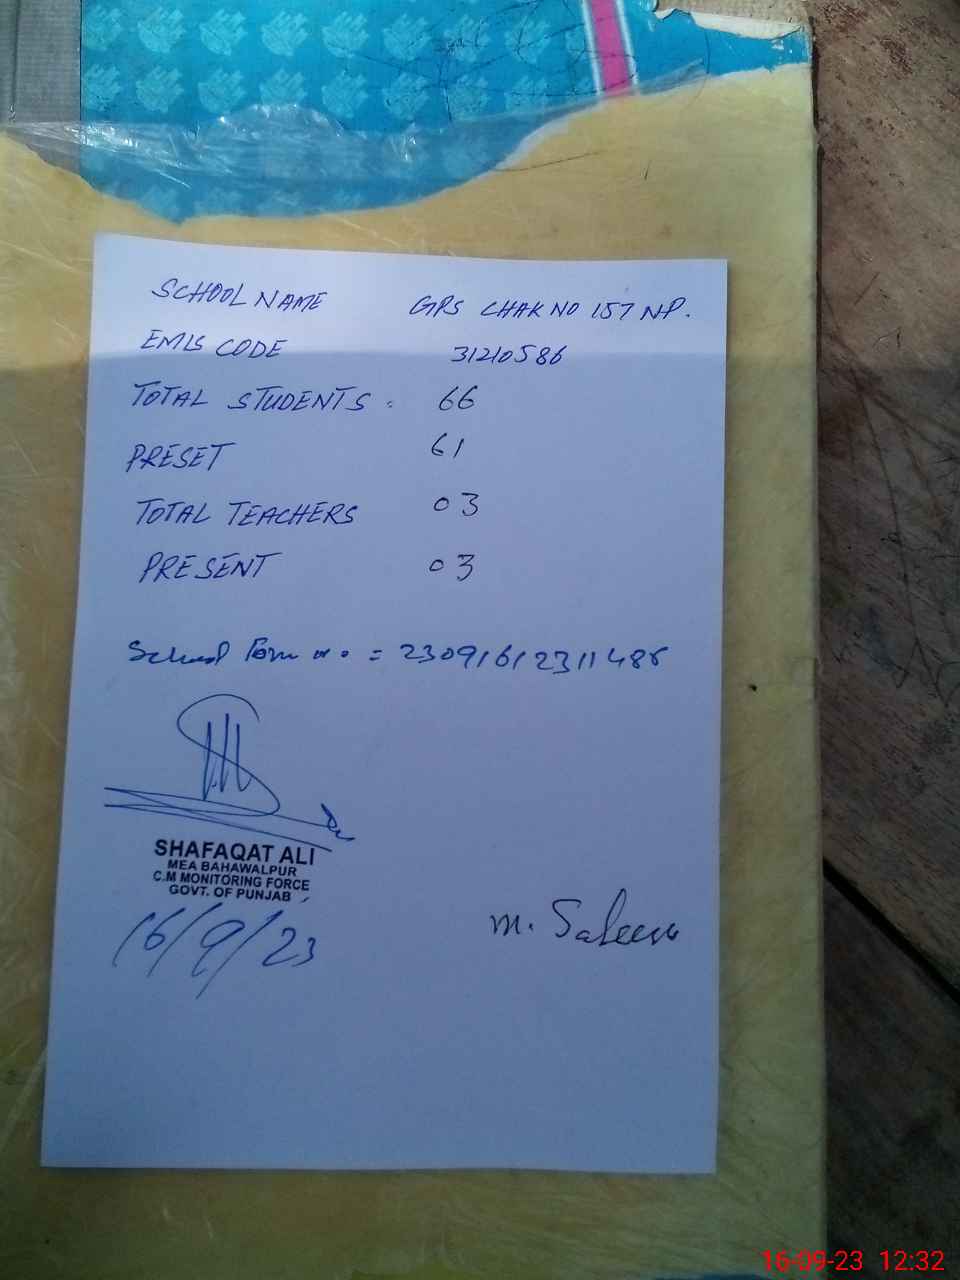 SCHOOL NAME GPS CHAK NO 157 NP.
EMIS CODE 31210586
TOTAL STUDENTS . 66
PRESET 61
TOTAL TEACHERS 03
PRESENT 03
School Form no. = 2309161231148
SHAFAQAT ALI
MEA BAHAWALPUR
C.M MONITORING FORCE
GOVT. OF PUNJAB
16/9/23
m. Saleem
16-09-23 12:32